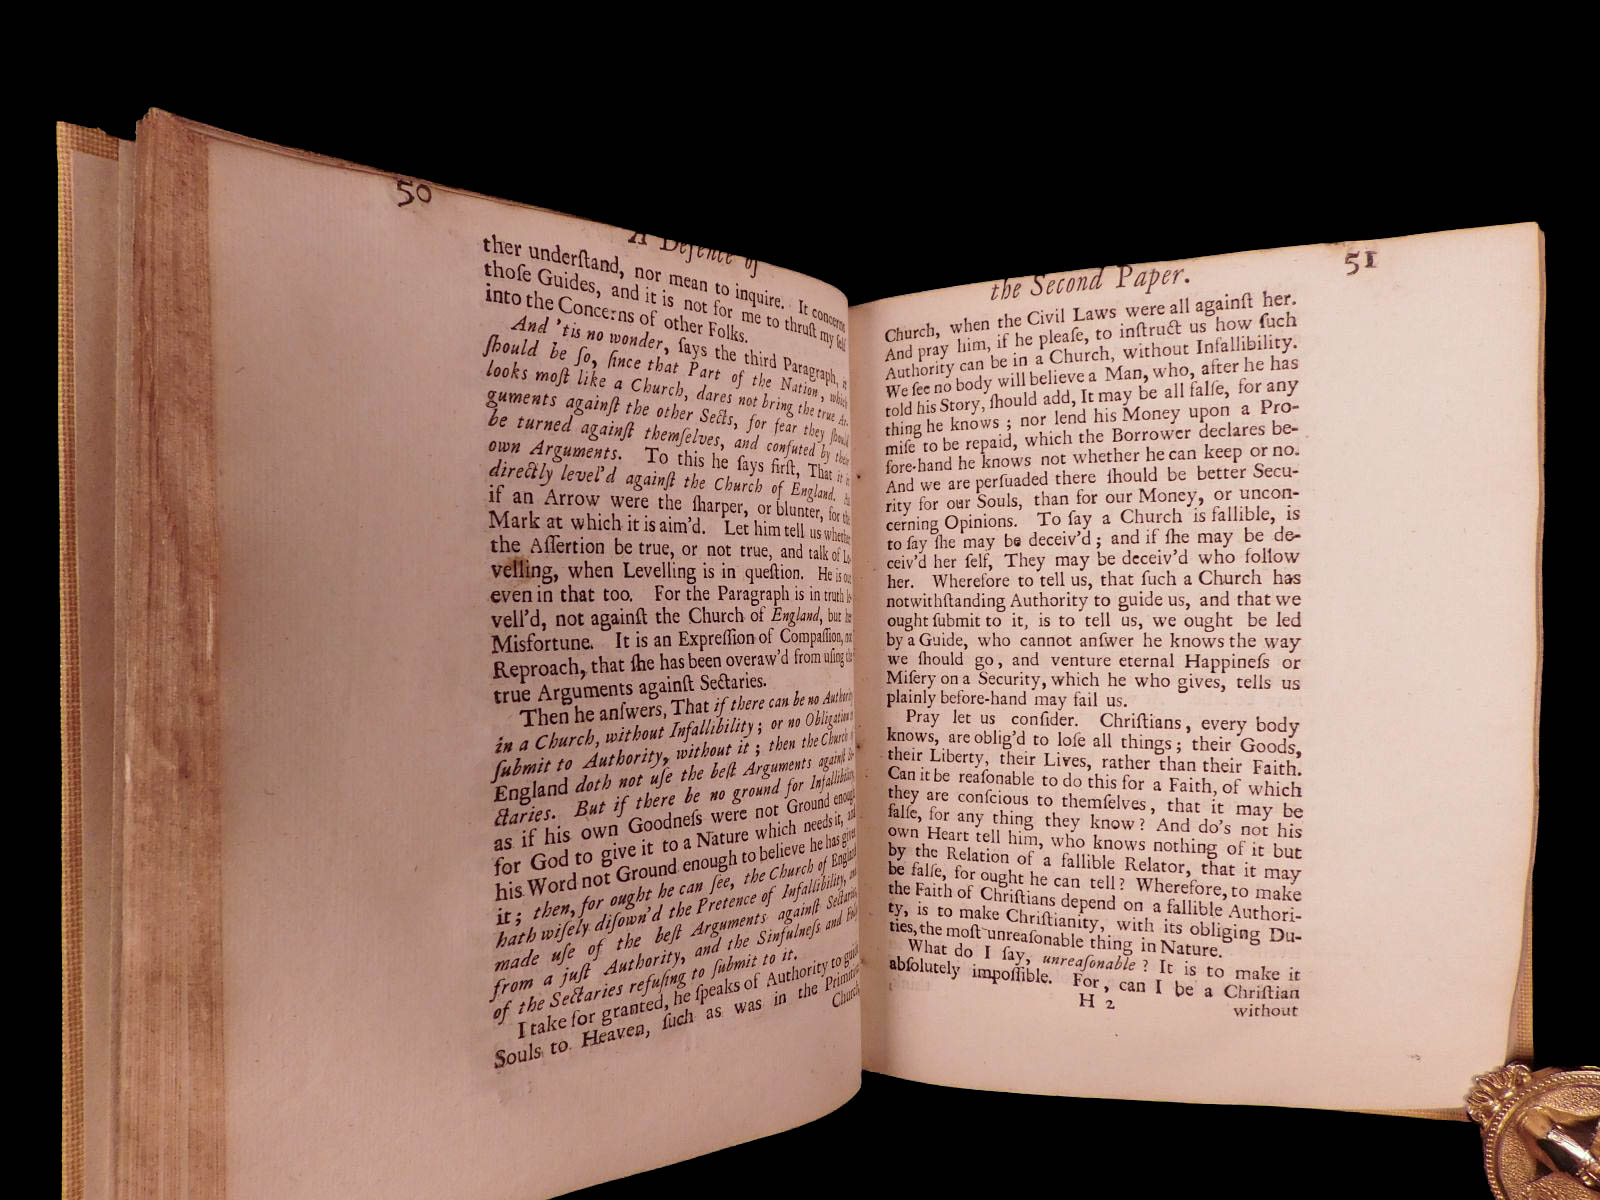 50
A Defence of
ther underſtand, nor mean to inquire. It concerns
thoſe Guides, and it is not for me to thruſt my ſelf
into the Concerns of other Folks.
And 'tis no wonder, ſays the third Paragraph, it
ſhould be ſo, ſince that Part of the Nation, which
looks moſt like a Church, dares not bring the true Ar-
guments againſt the other Sects, for fear they ſhould
be turned againſt themſelves, and confuted by their
own Arguments. To this he ſays firſt, That it is
directly level'd againſt the Church of England. As
if an Arrow were the ſharper, or blunter, for the
Mark at which it is aim'd. Let him tell us whether
the Aſſertion be true, or not true, and talk of Le-
velling, when Levelling is in queſtion. He is out
even in that too. For the Paragraph is in truth le-
vell'd, not againſt the Church of England, but her
Misfortune. It is an Expreſſion of Compaſſion, not
Reproach, that ſhe has been overaw'd from uſing the
true Arguments againſt Sectaries.
Then he anſwers, That if there can be no Authority
in a Church, without Infallibility; or no Obligation to
ſubmit to Authority, without it; then the Church of
England doth not uſe the beſt Arguments againſt Se-
ctaries. But if there be no ground for Infallibility,
as if his own Goodneſs were not Ground enough
for God to give it to a Nature which needs it, and
his Word not Ground enough to believe he has given
it; then, for ought he can ſee, the Church of England
hath wiſely diſown'd the Pretence of Infallibility, and
made uſe of the beſt Arguments againſt Sectaries,
from a juſt Authority, and the Sinfulneſs and Folly
of the Sectaries refuſing to ſubmit to it.
I take for granted, he ſpeaks of Authority to guide
Souls to Heaven, ſuch as was in the Primitive
Church,
51
the Second Paper.
Church, when the Civil Laws were all againſt her.
And pray him, if he pleaſe, to inſtruct us how ſuch
Authority can be in a Church, without Infallibility.
We ſee no body will believe a Man, who, after he has
told his Story, ſhould add, It may be all falſe, for any
thing he knows; nor lend his Money upon a Pro-
miſe to be repaid, which the Borrower declares be-
fore-hand he knows not whether he can keep or no.
And we are perſuaded there ſhould be better Secu-
rity for our Souls, than for our Money, or uncon-
cerning Opinions. To ſay a Church is fallible, is
to ſay ſhe may be deceiv'd; and if ſhe may be de-
ceiv'd her ſelf, They may be deceiv'd who follow
her. Wherefore to tell us, that ſuch a Church has
notwithſtanding Authority to guide us, and that we
ought ſubmit to it, is to tell us, we ought be led
by a Guide, who cannot anſwer he knows the way
we ſhould go, and venture eternal Happineſs or
Miſery on a Security, which he who gives, tells us
plainly before-hand may fail us.
Pray let us conſider. Chriſtians, every body
knows, are oblig'd to loſe all things; their Goods,
their Liberty, their Lives, rather than their Faith.
Can it be reaſonable to do this for a Faith, of which
they are conſcious to themſelves, that it may be
falſe, for any thing they know? And do's not his
own Heart tell him, who knows nothing of it but
by the Relation of a fallible Relator, that it may
be falſe, for ought he can tell? Wherefore, to make
the Faith of Chriſtians depend on a fallible Authori-
ty, is to make Chriſtianity, with its obliging Du-
ties, the moſt unreaſonable thing in Nature.
What do I ſay, unreaſonable? It is to make it
abſolutely impoſſible. For, can I be a Chriſtian
H 2
without